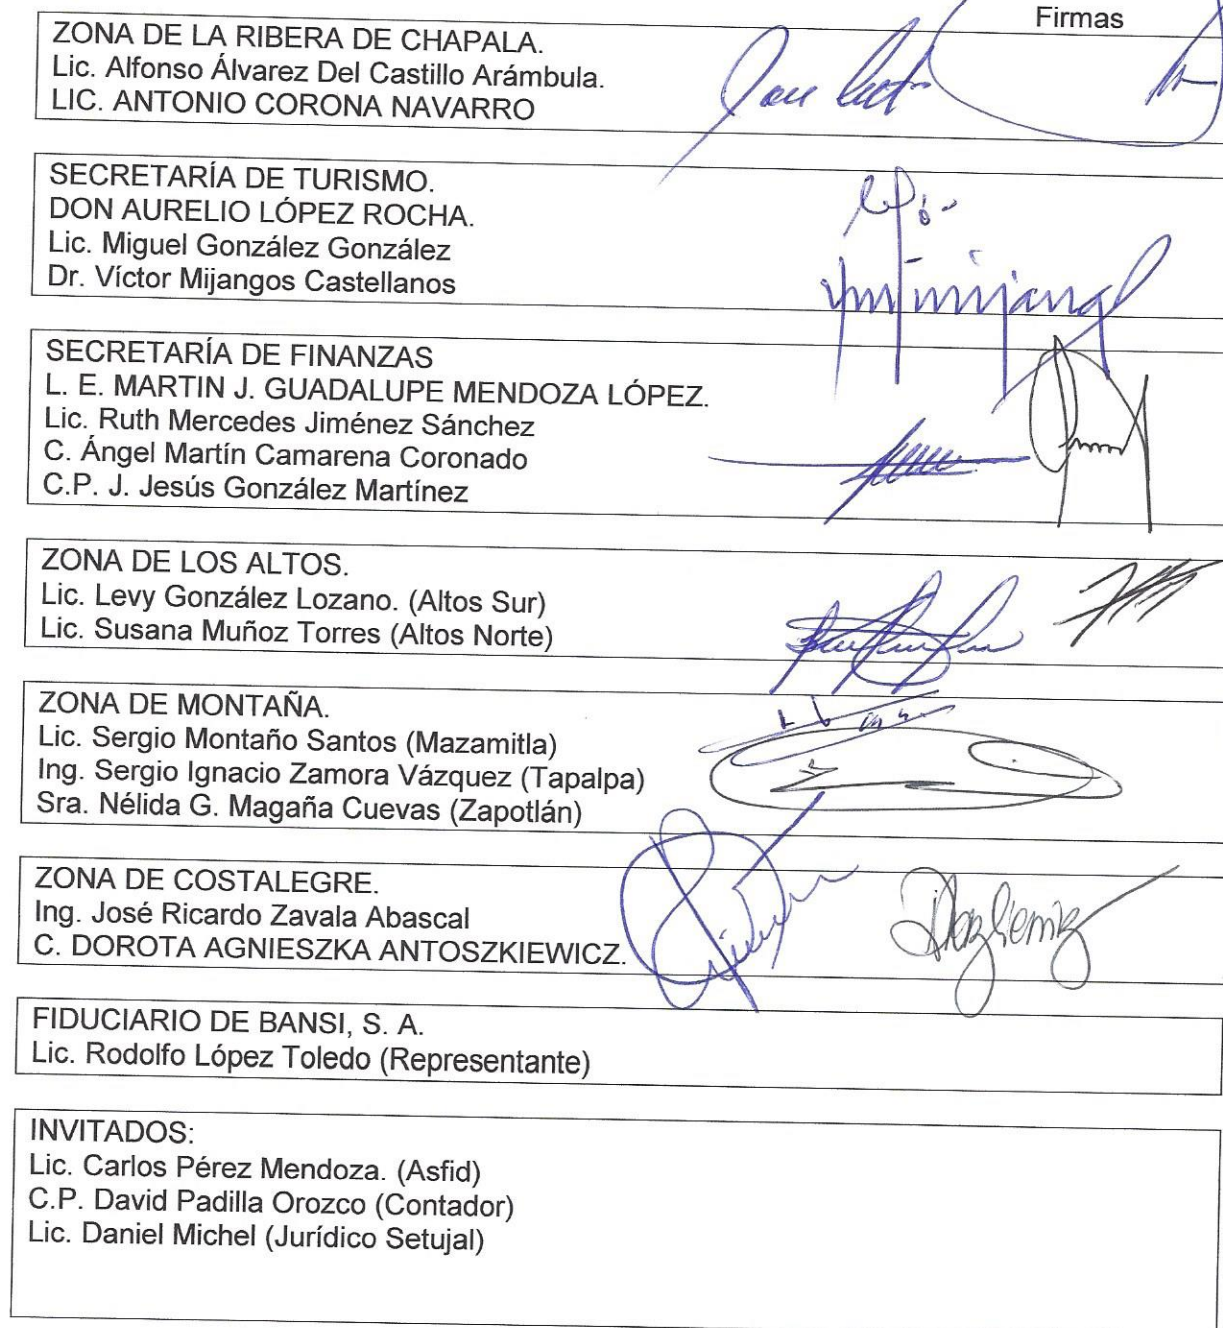 Firmas
ZONA DE LA RIBERA DE CHAPALA.
Lic. Alfonso Álvarez Del Castillo Arámbula.
LIC. ANTONIO CORONA NAVARRO
SECRETARÍA DE TURISMO.
DON AURELIO LÓPEZ ROCHA.
Lic. Miguel González González
Dr. Víctor Mijangos Castellanos
SECRETARÍA DE FINANZAS
L. E. MARTIN J. GUADALUPE MENDOZA LÓPEZ.
Lic. Ruth Mercedes Jiménez Sánchez
C. Ángel Martín Camarena Coronado
C.P. J. Jesús González Martínez
ZONA DE LOS ALTOS.
Lic. Levy González Lozano. (Altos Sur)
Lic. Susana Muñoz Torres (Altos Norte)
ZONA DE MONTAÑA.
Lic. Sergio Montaño Santos (Mazamitla)
Ing. Sergio Ignacio Zamora Vázquez (Tapalpa)
Sra. Nélida G. Magaña Cuevas (Zapotlán)
ZONA DE COSTALEGRE.
Ing. José Ricardo Zavala Abascal
C. DOROTA AGNIESZKA ANTOSZKIEWICZ.
FIDUCIARIO DE BANSI, S. A.
Lic. Rodolfo López Toledo (Representante)
INVITADOS:
Lic. Carlos Pérez Mendoza. (Asfid)
C.P. David Padilla Orozco (Contador)
Lic. Daniel Michel (Jurídico Setujal)